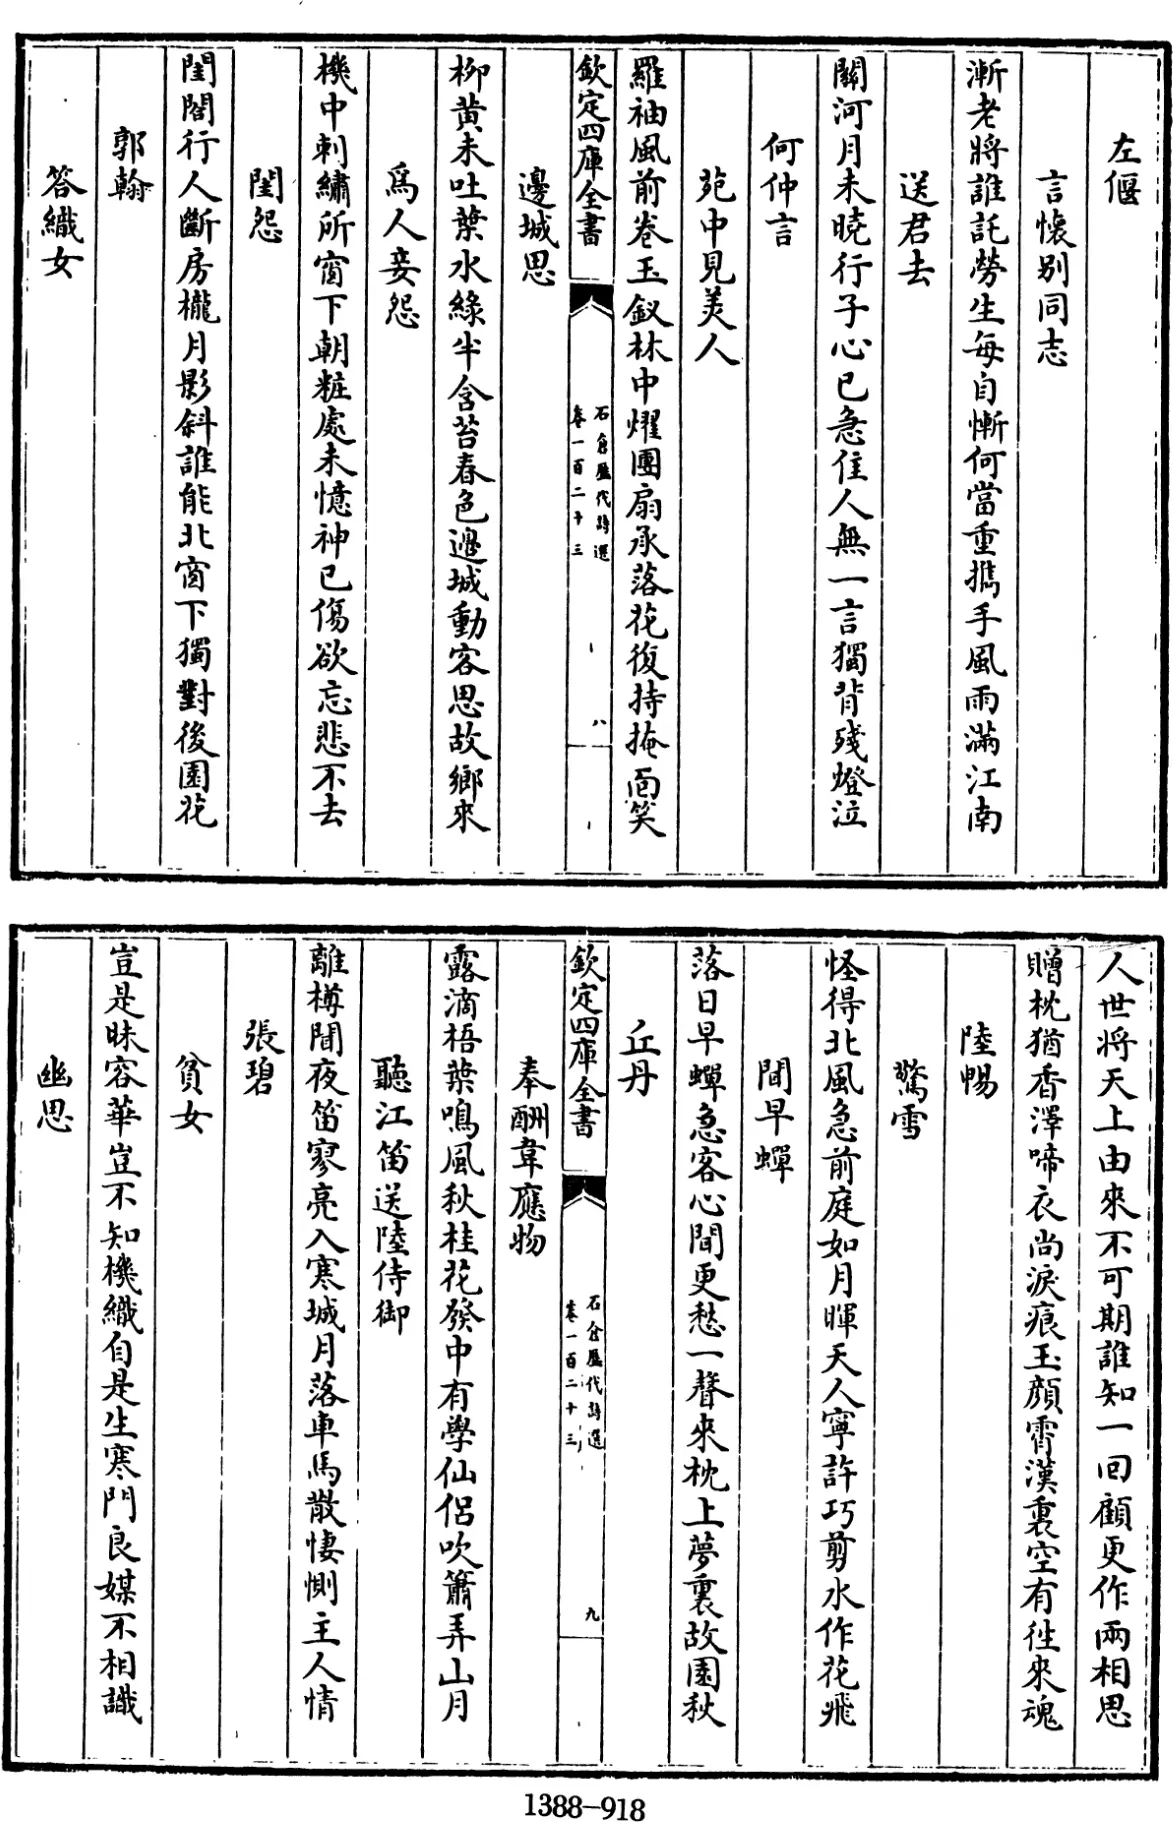 左偃
言懷别同志
漸老將誰託勞生每自慚何當重攜手風雨滿江南
送君去
關河月未曉行子心已急住人無一言獨背殘燈泣
何仲言
苑中見美人
羅袖風前卷玉釵林中燿團扇承落花復持掩面笑
欽定四庫全書
石倉歷代詩選
卷一百二十三
八
邊城思
柳黄未吐葉水綠半含苔春色邊城動客思故鄉來
爲人妾怨
機中刺繡所窗下朝粧處未憶神已傷欲忘悲不去
閨怨
閨閤行人斷房櫳月影斜誰能北窗下獨對後園花
郭翰
答織女
人世將天上由來不可期誰知一回顧更作兩相思
贈枕猶香澤啼衣尚淚痕玉顔霄漢裏空有徃來魂
陸暢
驚雪
怪得北風急前庭如月暉天人寧許巧剪水作花飛
聞早蟬
落日早蟬急客心聞更愁一聲來枕上夢裏故園秋
丘丹
奉酬韋應物
露滴梧葉鳴風秋桂花發中有學仙侣吹簫弄山月
聽江笛送陸侍御
離樽聞夜笛寥亮入寒城月落車馬散悽惻主人情
張碧
貧女
豈是昧容華豈不知機織自是生寒門良媒不相識
幽思
欽定四庫全書
石倉歷代詩選
卷一百二十三
九
1388-918